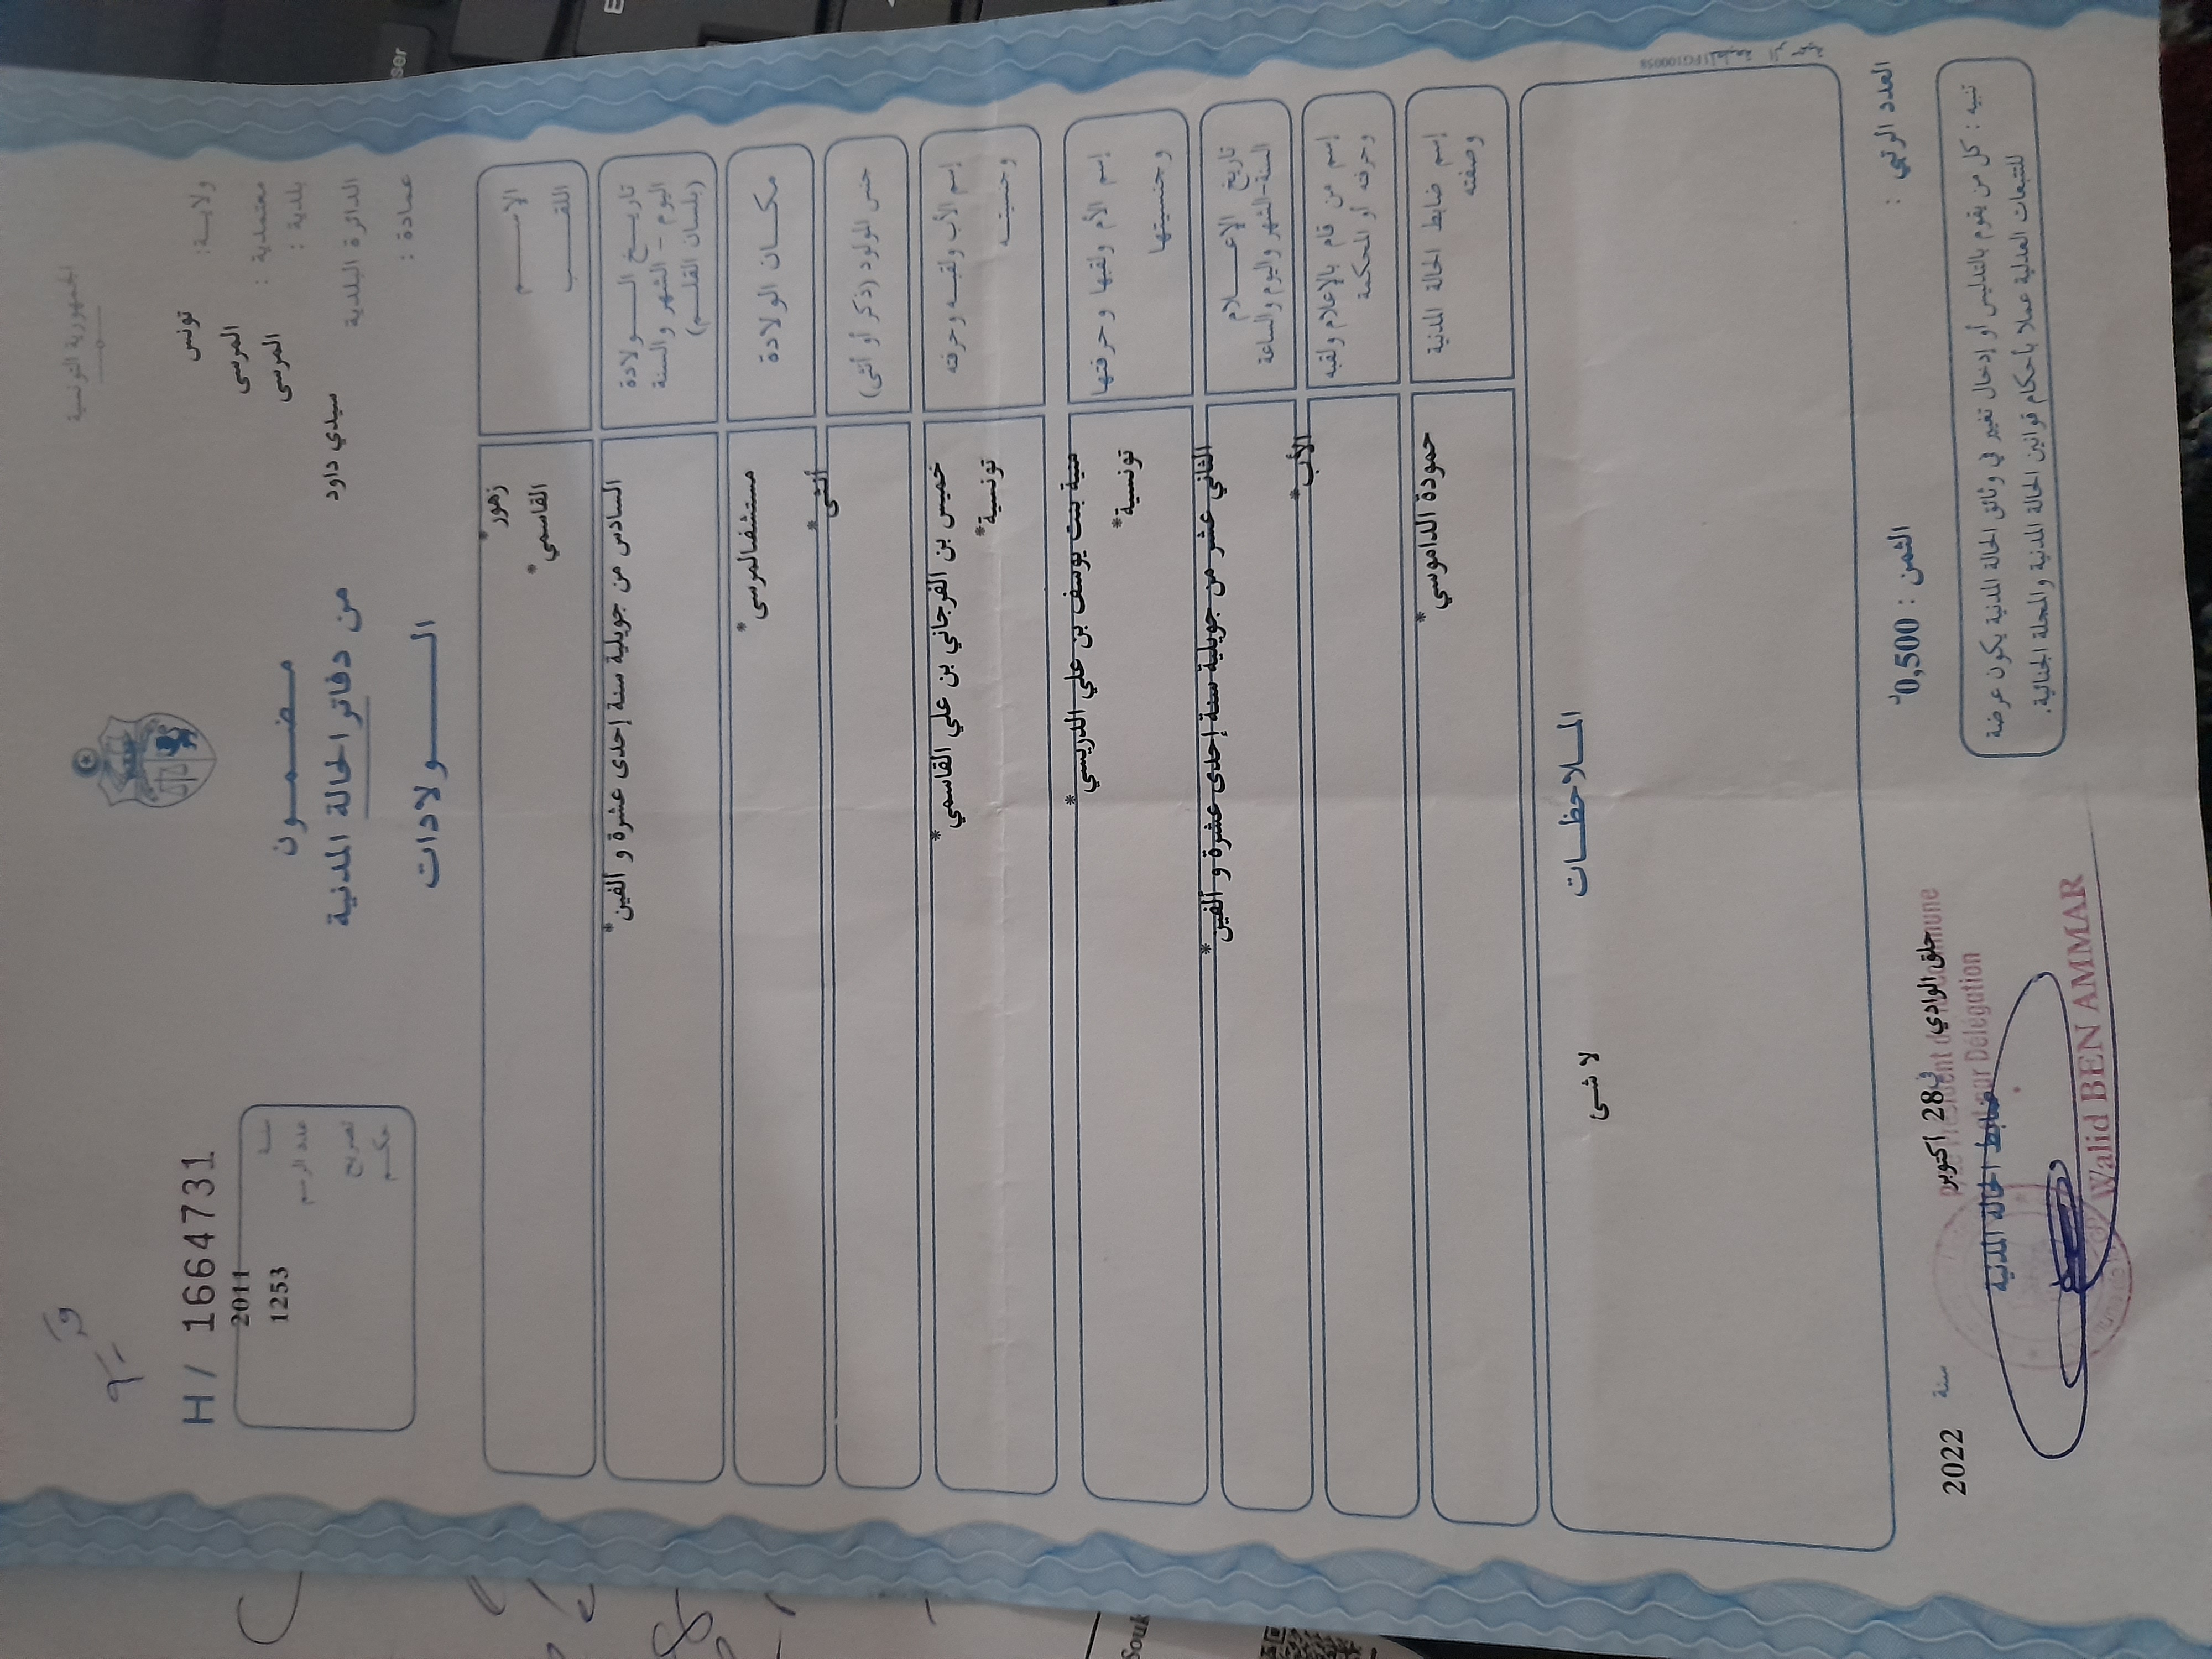 الجمهورية التونسية
ولايـة : تونس
معتمدية : المرسى
بلدية : المرسى
الدائرة البلدية سيدي داود
عمادة :
مـضـمـون
من دفاتر الحالة المدنية
الـولادات
H / 16647731
سنة 2011
عدد الرسم 1253
تصريح
حكم
الاسـم زهور*
اللقـب القاسمي*
تاريـخ الـولادة
اليوم - الشهر والسنة
(بلسان القلـم)
السادس من جويلية سنة إحدى عشرة و الفين*
مكـان الولادة مستشفىالمرسى*
جنس المولود (ذكر أو أنثى) أنثى*
إسم الأب ولقبـه وحرفته خميس بن الفرجاني بن علي القاسمي*
وجنسيتـه تونسية*
إسم الأم ولقبها وحرفتها منية بنت يوسف بن علي الدريسي*
وجنسيتها تونسية*
تاريخ الإعـلام
السنة-الشهر واليوم والساعة
الثاني عشر من جويلية سنة إحدى عشرة و ألفين*
إسم من قام بالإعلام ولقبه
وحرفته أو المحكمة
الأب*
إسم ضابط الحالة المدنية حمودة الداموسي*
وصفته
المـلاحظـات
لا شىء
العدد الرتبي :
الثمن : 0,500د
حلق الوادي في 28 أكتوبر سنة 2022
ضابط الحالة المدنية
Délégation
Walid BEN AMMAR
تنبيه : كل من يقوم بالتدليس أو إدخال تغيير في وثائق الحالة المدنية يكون عرضة
للتتبعات العدلية عملا بأحكام قوانين الحالة المدنية والمجلة الجنائية.
Souk